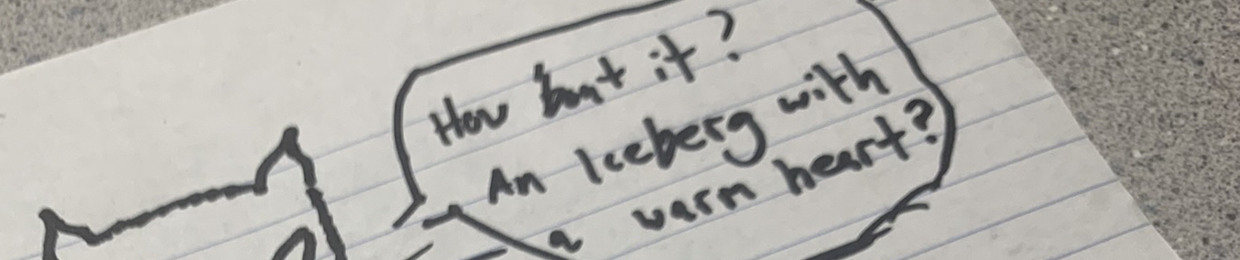 How 'bout it?
An Iceberg with
a warm heart?